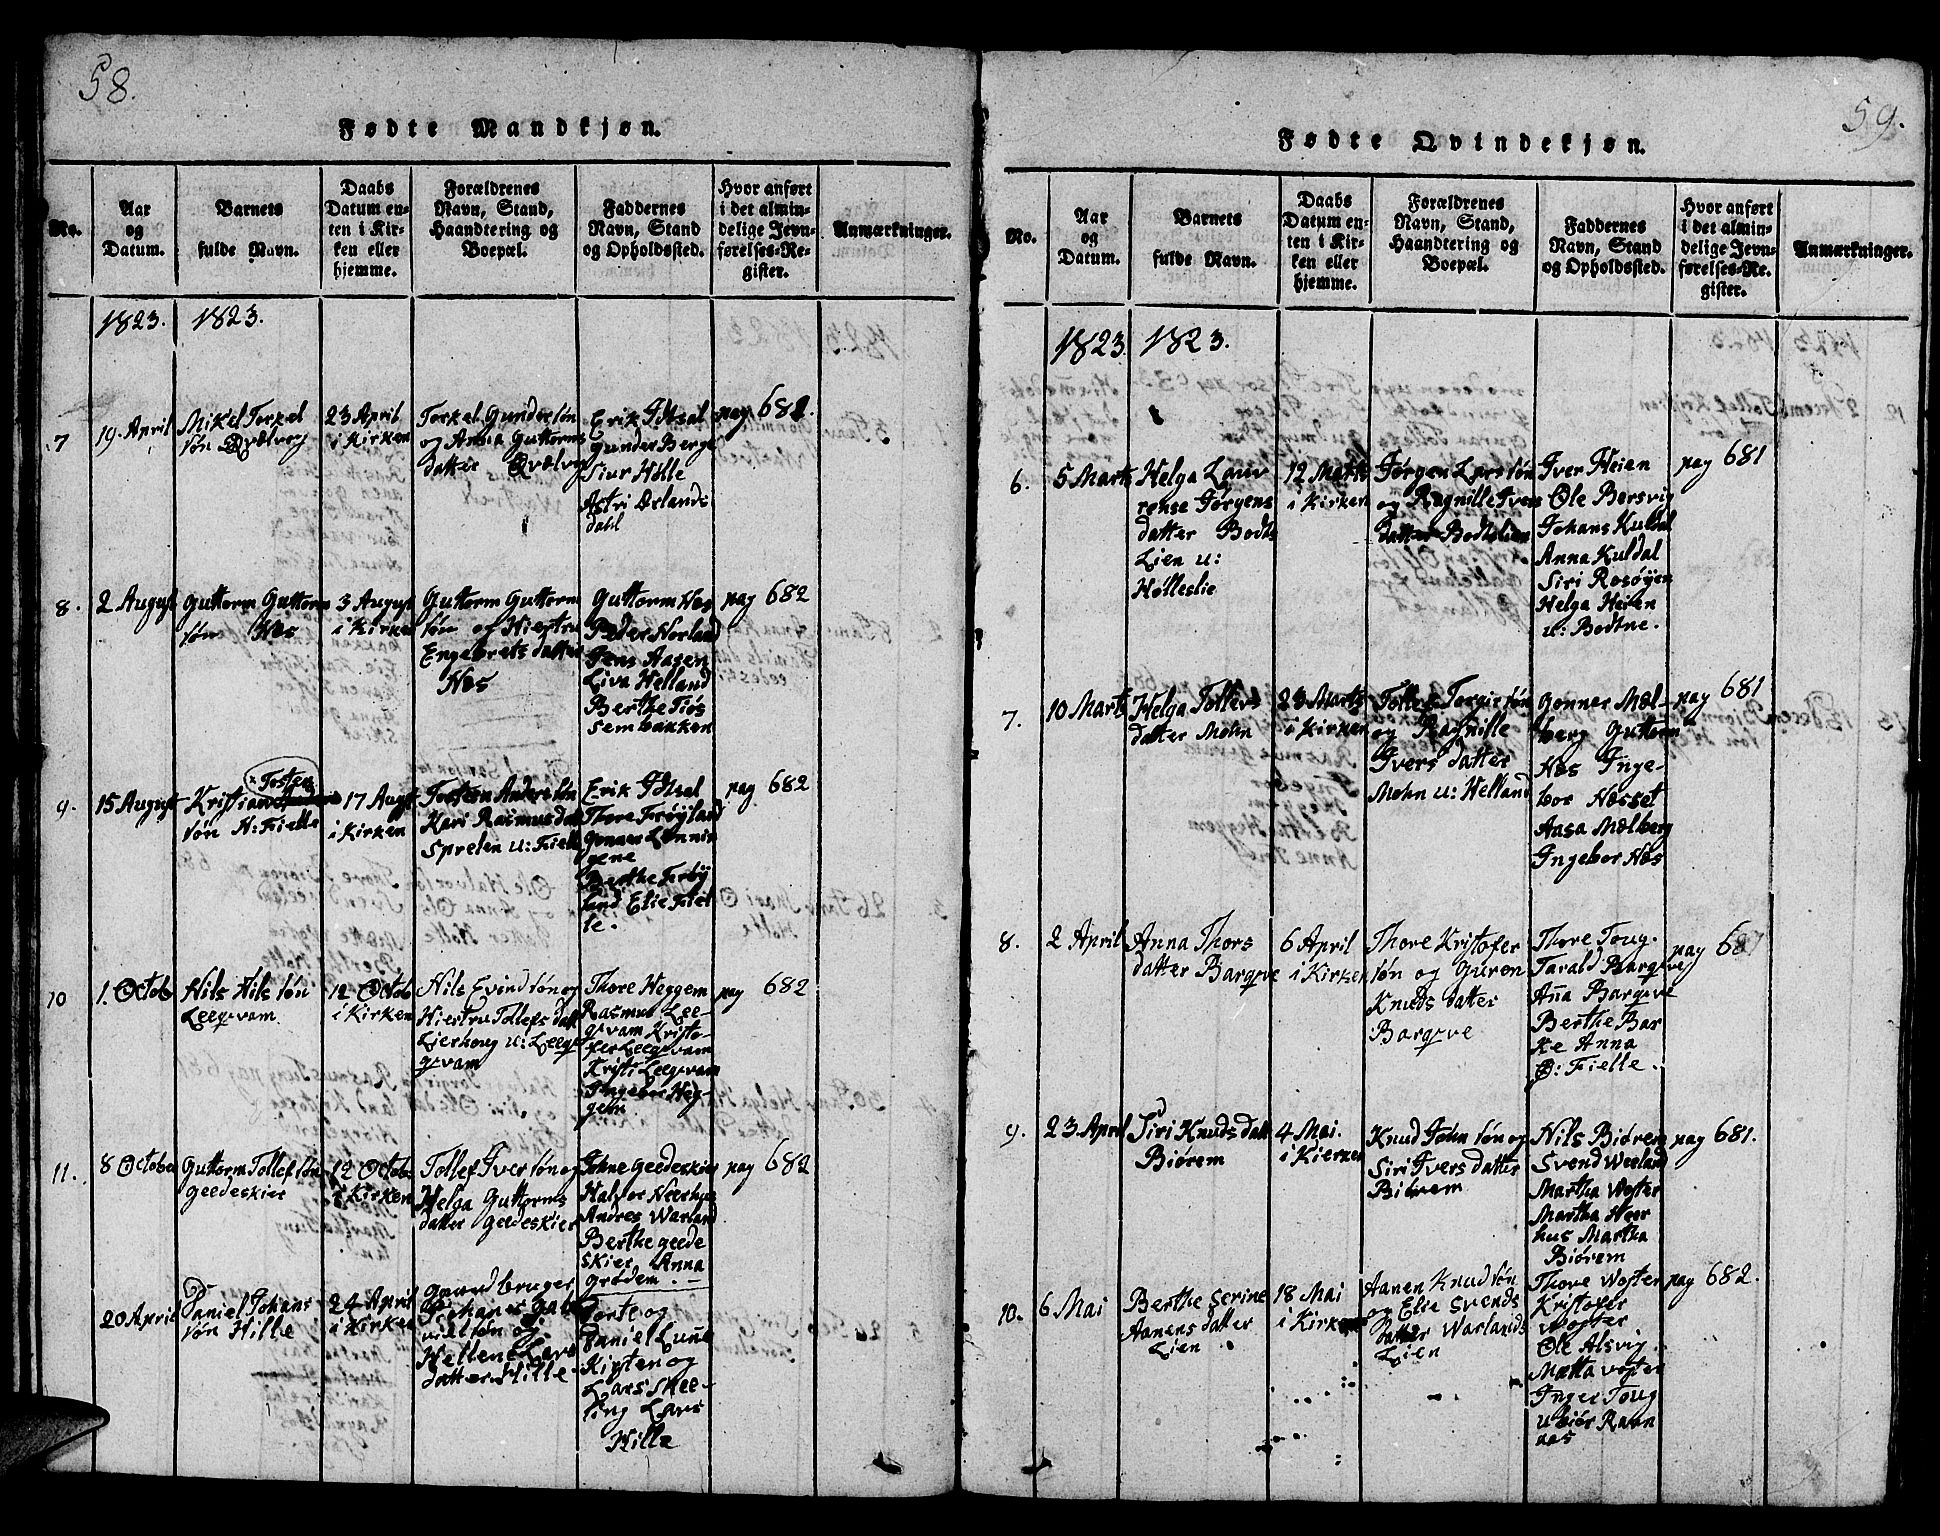 58.
Fødte Mandkjøn.
No.
Aar
og
Datum.
Barnets
fulde Navn.
Daabs
Datum en-
ten i Kir-
ken eller
hjemme.
Forældrenes
Navn, Stand,
Haandtering og
Boepæl.
Faddernes
Navn, Stand
og Opholdssted.
Hvor anført
i det almin-
delige Jevn-
førelses-Re-
gister.
Anmærkninger.
1823.
1823.
7
19. April
Mikel Torkel
søn Qvælvog
23 April
i Kirken
Torkel Gundersøn
og Anna Guttorms
datter Qvælvog
Erik Idsal
Gunder Berge
Siur Hille
Astri Ørlands
dahl
pag 682.
8.
2 August
Guttorm Guttorm
søn Næs
3 August
i Kirken
Guttorm Guttorm
søn og Hiertru
Engebrets datter
Næs
Guttorm Næs
Peder Norland
Jens Aasen
Liva Helland
Berthe Tiøs
sembakken
pag 682
9.
15 August
Kristian Tosten
søn H: Fielle
17 Augst
i Kirken
Torsten Andersøn
Kari Rasmusdat
Spreten u: Fielle
Erik Idsal
Thore Frøyland
Gonner Lønnin
gene
Berthe Frøy
land Elie Fiel
le.
pag 682
10
1. Octob
Nils Nils søn
Leeqvam
12 Octob
i Kirken
Nils Evindsøn og
Hiertru Tollefs datt
Lierhoug u: Leeq
qvam
Thore Heggem
Rasmus Lee-
qvam Kristo-
fer Leeqvam
Kristi Leeqvam
Ingebor Heg-
gem
pag 682
11.
8 October
Guttorm Tollefsøn
Geedeskier
12 Octob
i Kirken
Tollef Iversøn og
Helga Guttorms
datter Geedeskier
Johne Geedeskier
Halvor Neerhus
Andres Warland
Berthe Geede
skier Anna
Grødem.
pag 682
20 April
Daniel Johans
søn Hille
24 April
i Kirken
Gaardbruger
Johanes Dan
nielsøn og
Hellene Lars
datter Hille
Dorte og
Daniel Lunne
Kirsten og
Lars Mee-
ling Lars
Hille
59.
Fødte Qvindekjøn.
No.
Aar
og
Datum.
Barnets
fulde Navn.
Daabs
Datum en-
ten i Kir-
ken eller
hjemme.
Forældrenes
Navn, Stand,
Haandtering og
Boepæl.
Faddernes
Navn, Stand
og Opholdssted.
Hvor anført
i det almin-
delige Jevn-
førelses-Re-
gister.
Anmærkninger.
1823.
1823.
6.
5 Marts
Helga Laur
rense Jørgens
datter Bodts
Lien u:
Hølleslie
12 Marts
i Kirken
Jørgen Larssøn
og Ragnille Ivers
datter Bodtslien
Iver Heien
Ole Børsvig
Johans Kuldal
Anna Kuldal
Siri Rosøyen
Helga Heien
u: Bodtne.
pag 681
7.
10 Marts
Helga Tollevs
datter Mohn
23 Marts
i Kirken
Tollef Torgiersøn
og Ragnille
Ivers datter
Mohn u: Helland
Gonner Mæl-
berg Guttorm
Næs Inge-
bor Næsset
Aasa Mælberg
Ingebor Næs
pag 681
8.
2 April
Anna Thors
datter Bargeve
6 April
i Kirken
Thore Kristofer
søn og Guren
Knuds datter
Bargeve
Thore Toug.
Tarald Bargeve
Aña Bargeve
Berthe Bar
ke Anna
Ø: Fielle.
pag 681
9.
23 April
Siri Knuds datt
Biørem
4 Mai.
i Kierken
Knud Johnsøn og
Siri Ivers datter
Biørem
Nils Biørem
Svend Werland
Martha Voster
Martha Neer
hus Martha
Biørem
pag 681.
10.
6 Mai
Berthe Serine
Aanensdatter
Lien
18 Mai
i Kirken
Aanen Knudsøn
og Elie Svends
datter Warlands
Lien
Thore Voster
Kristofer
Voster
Ole Alsvig
Mætta Voster
Inger Toug
u biør Ravn
aas
pag 682.